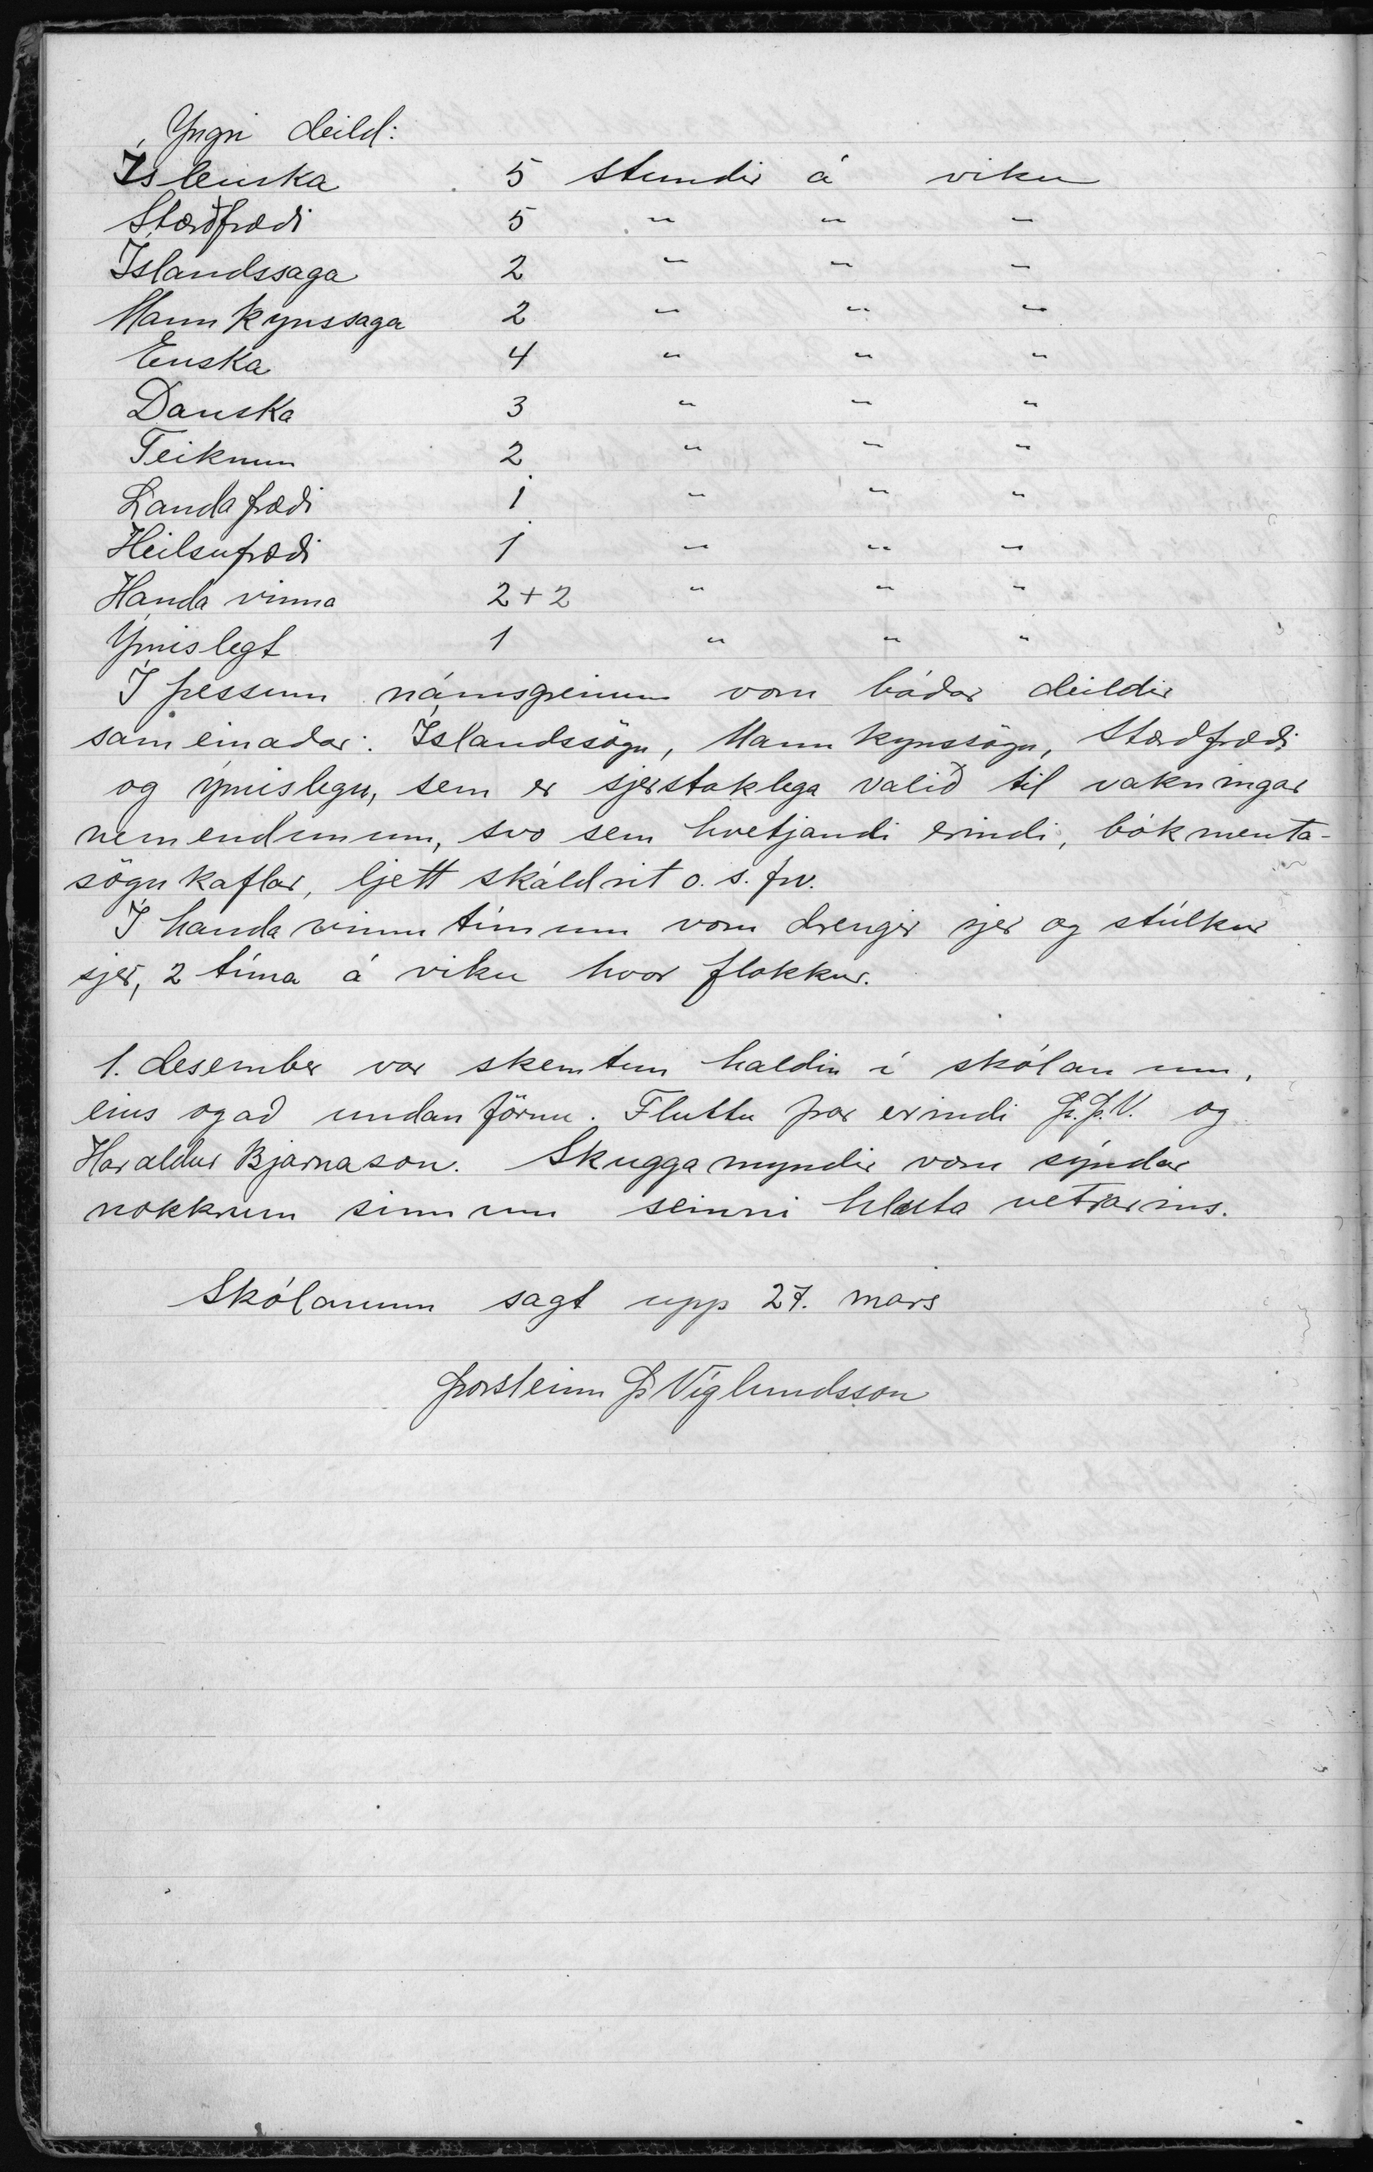 Yngri deild:
Íslenska 5 stundir á viku
Stærðfræði 5 " " "
Íslandssaga 2 " " "
Mannkynssaga 2 " " "
Enska 4 " " "
Danska 3 " " "
Teiknun 2 " " "
Landafræði 1 " " "
Heilsufræði 1 " " "
Handavinna 2+2 " " "
Ýmislegt 1 " " "
Í þessum námsgreinum voru báðar deildir
sameinaðar: Íslandssögu, Mannkynssögu, Stærðfræði
og ýmislegu, sem er sjerstaklega valið til vakningar
nemendunum, svo sem hvetjandi erindi, bókmenta-
sögukaflar, ljett skáldrit o. s. frv.
Í handavinnutímum voru drengir sjer og stúlkur
sjer, 2 tíma á viku hvor flokkur.
1. desember var skemtun haldin í skólanum,
eins og að undanförnu. Fluttu þar erindi Þ.Þ.V. og
Haraldur Bjarnason. Skuggamyndir voru sýndar
nokkrum sinnum seinni hluta vetrarins.
Skólanum sagt upp 27. mars
Þorsteinn Þ Víglundsson